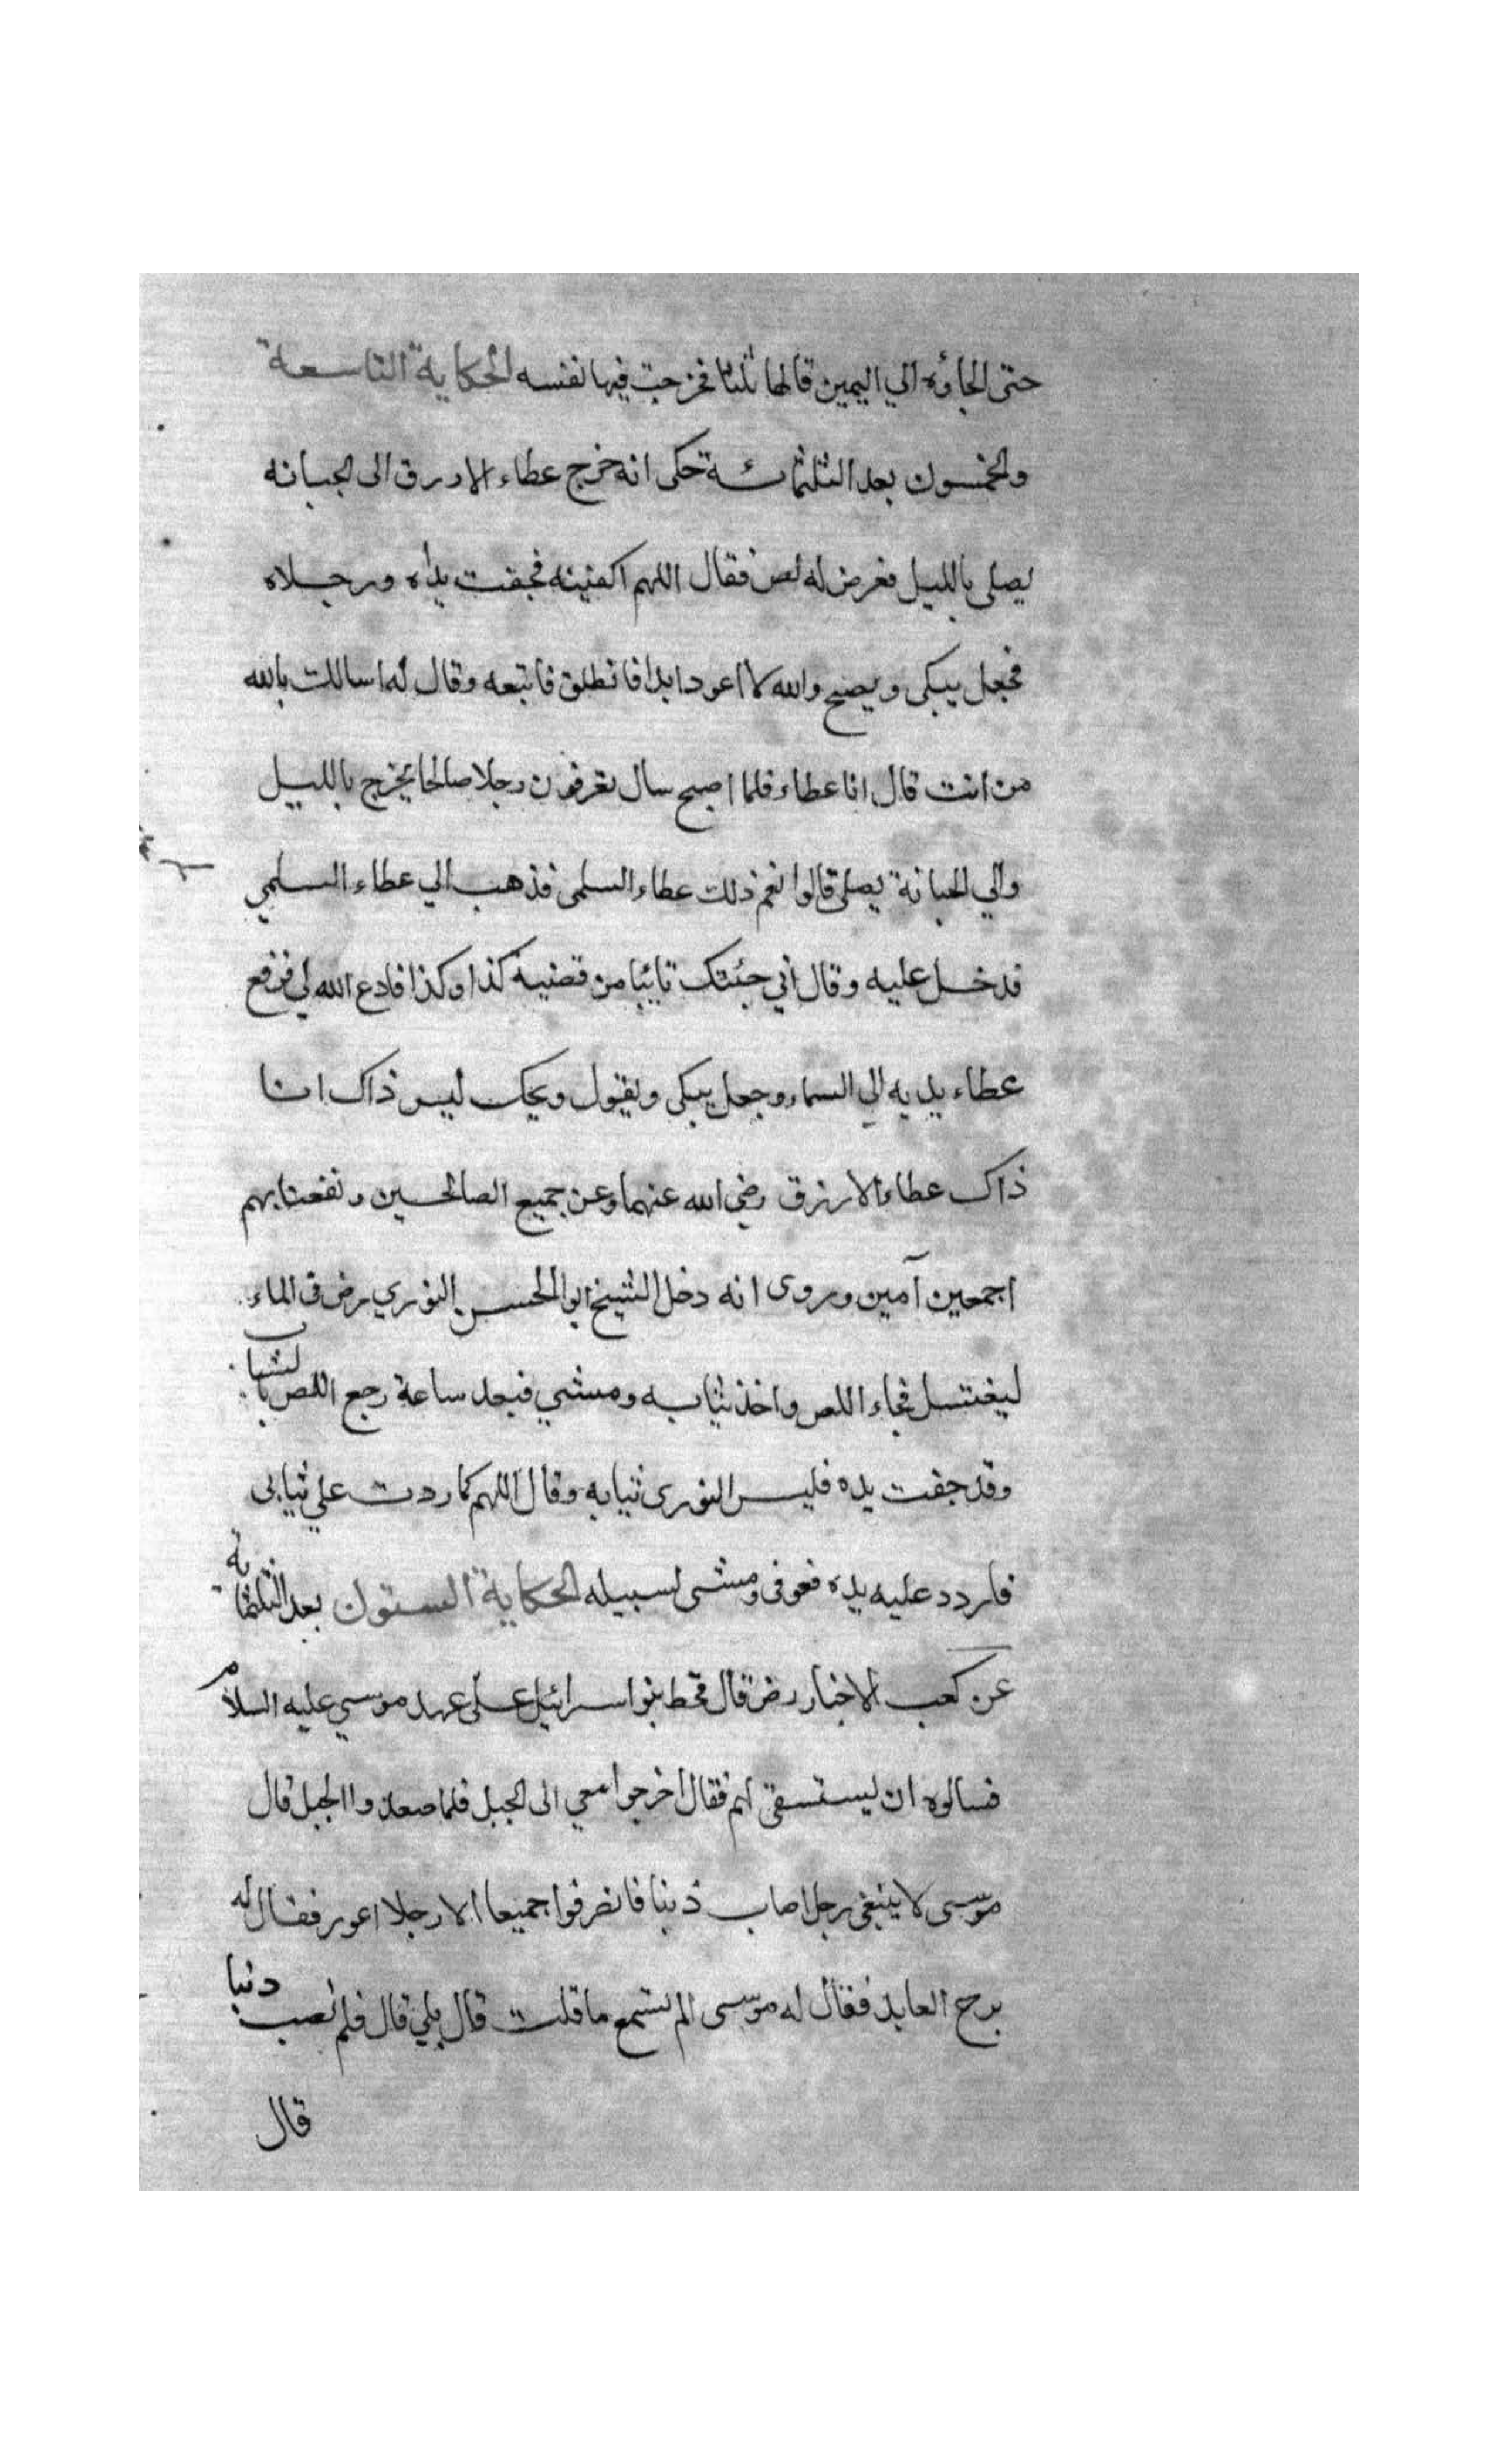 حتى الجاؤه الي اليمين قالها ثلثا فخرجت فيها نفسه الحكاية التاسعة
والخمسون بعد الثلثمائة حكى انه خرج عطاء الازرق الى الجبانه
يصلى بالليل فعرض له لص فقال اللهم اكفنيه فجفت يداه ورجلاه
فجعل يبكى ويصيح والله لا اعود ابدا فانطلق فاتبعه وقال له اسالك بالله
من انت قال انا عطاء فلما اصبح سال تعرفون رجلا صالحا يخرج بالليل
والي الجبانة يصلى قالوا نعم ذلك عطاء السلمى فذهب الي عطاء السلمي
فدخل عليه وقال اني جئتك تايبا من قضية كذا وكذا فادع الله لي فرفع
عطاء يديه الي السماء وجعل يبكى ويقول ويحك ليس ذاك انا
ذاك عطاء الازرق رضي الله عنهما وعن جميع الصالحين ونفعنا بهم
اجمعين آمين وروى انه دخل الشيخ ابو الحسن النوري رض فى الماء
ليغتسل فجاء اللص واخذ ثيابه ومشي فبعد ساعة رجع اللص بالثياب
وقد جفت يده فلبس النورى ثيابه وقال اللهم كما ردت علي ثيابى
فاردد عليه يده فعوفى ومشى لسبيله الحكاية الستون بعد الثلثماية
عن كعب الاخبار رض قال قحط بنو اسرائيل على عهد موسي عليه السلام
فسالوه ان يستسقى لهم فقال اخرجوا معي الى الجبل فلما صعدوا الجبل قال
موسى لا يتبغى رجل اصاب ذنبا فانصرفوا جميعا الا رجلا اعور فقال له
برح العابد فقال له موسى الم تسمع ما قلت قال بلي قال فلم تصب دنبا
قال